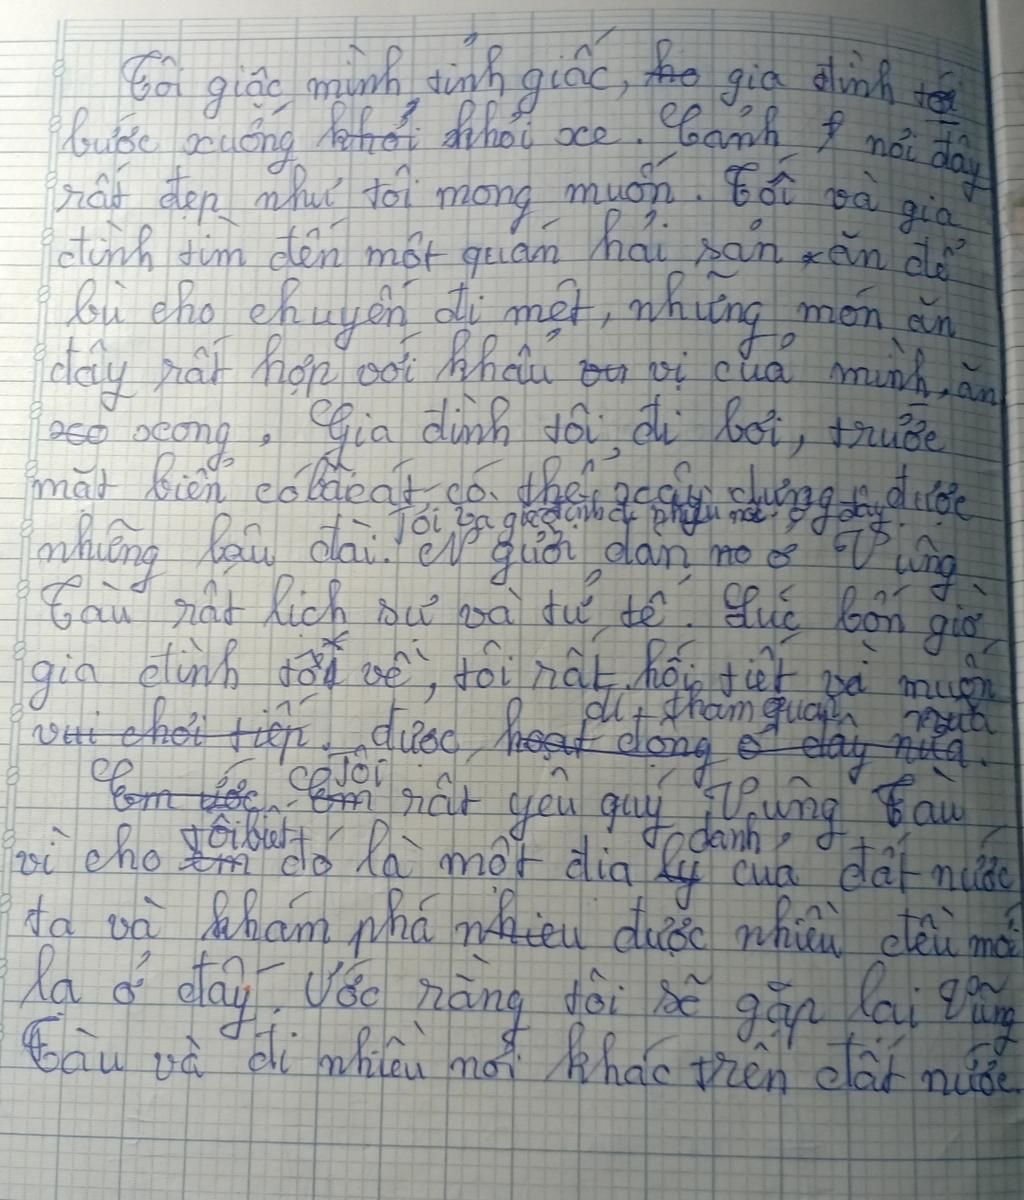 Tôi giặc mình tỉnh giấc, gia đình tôi
bước xuống khỏi xe. Cảnh nơi đây
rất đẹp như tôi mong muốn. Tối và gia
đình tìm đến một quán hải sản ăn để
bù cho chuyến đi mệt, những món ăn
đây rất hợp với khẩu vị của mình, ăn
xong, Gia đình tôi đi bơi, trước
mặt biển có bãi cát có thể xây dựng được
Tôi và gia đình đi ở đây
những lâu đài. Người dân ở Vũng
Tàu rất lịch sự và tử tế. Lúc bốn giờ
gia đình tôi về, tôi rất hối tiết và muốn
đi thăm quan nữa
vui chơi tiếp. được hoạt động ở đây nữa.
Tôi
rất yêu quý Vũng Tàu
tôi biết danh
vì cho em đó là một địa lý của đất nước
ta và khám phá nhieu được nhiều điều mới
lạ ở đây. Ước rằng tôi sẽ gặp lại Vũng
Tàu và đi nhiều nơi khác trên đất nước